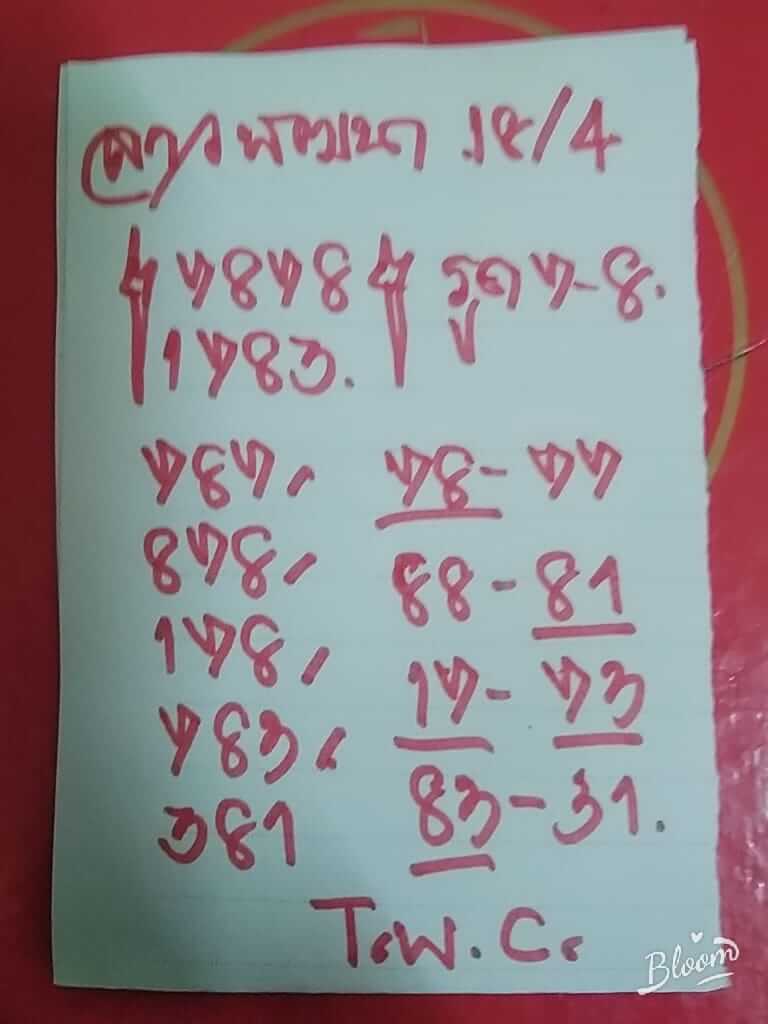 ลาวพัฒนา 18/4
7878 รูด 7-8.
1783.
787, 78- 77
878, 88-81
178, 17-73
783, 83-31.
381
T.W.C.
Bloom